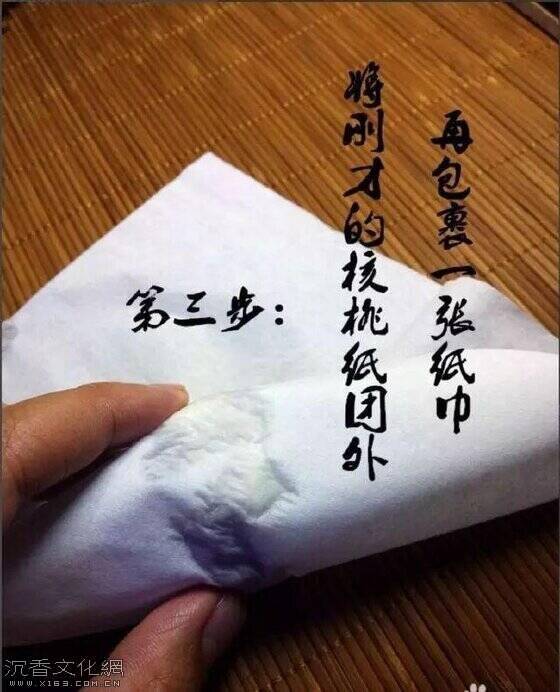 第三步：
将刚才的核桃纸团外
再包裹一张纸巾
沉香文化網
WWW.X169.COM.CN